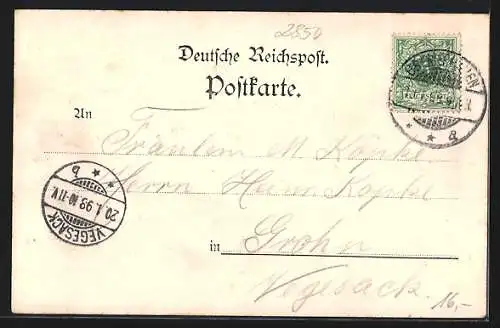 2850
Deutsche Reichspost.
Postkarte.
An
Fräulein M Köpke
Herrn Heinr Köpke
in Grohn
Vegesack.
16,-
VEGESACK
20.1.99.10-11V.
* * b
BREMERHAVEN
* * a